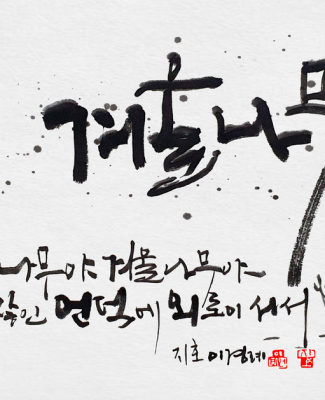 겨울나무
나무야 겨울나무야
쌓인 언덕에 외로이 서서
지호 이경례